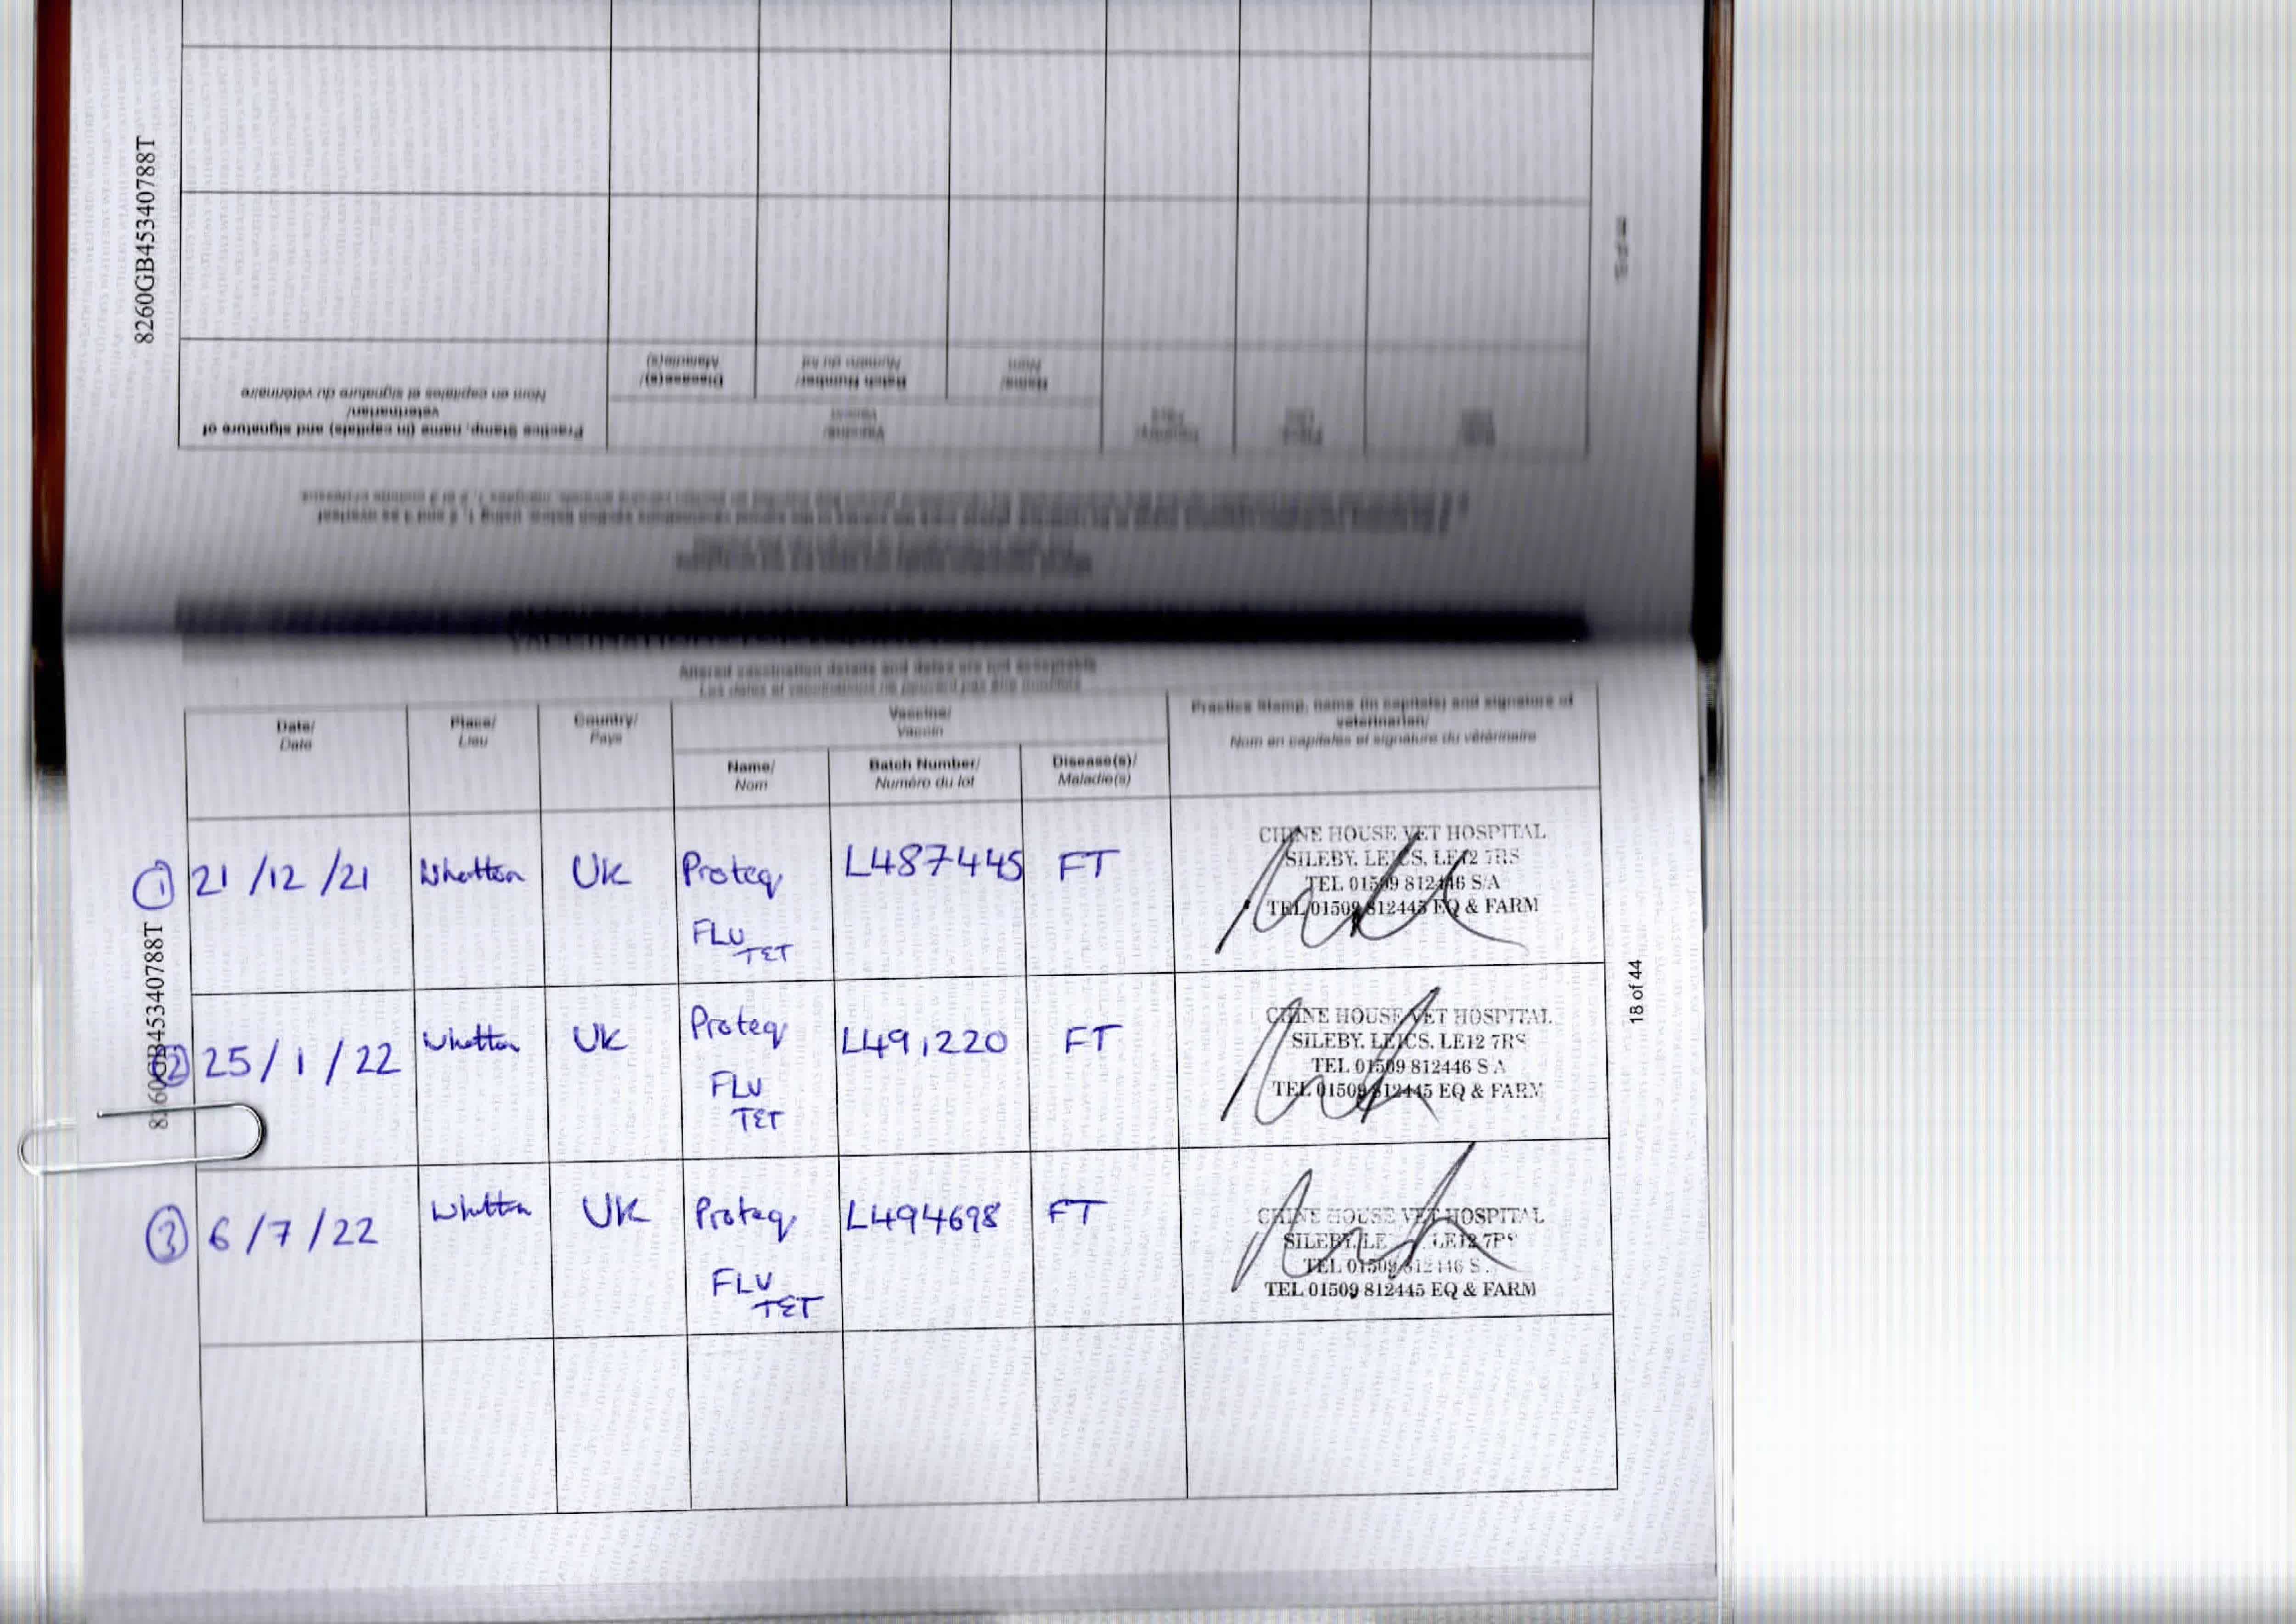 8260GB45340788T
Practice Stamp, name (in capitals) and signature of
veterinarian/
Nom en capitales et signature du vétérinaire
Vaccine/
Vaccin
Name/
Nom
Batch Number/
Numéro du lot
Disease(s)/
Maladie(s)
Altered vaccination details and dates are not acceptable
Les dates et vaccinations ne peuvent pas être modifiés
Date/
Date
Place/
Lieu
Country/
Pays
Vaccine/
Vaccin
Name/
Nom
Batch Number/
Numéro du lot
Disease(s)/
Maladie(s)
Practice Stamp, name (in capitals) and signature of
veterinarian/
Nom en capitales et signature du vétérinaire
1 21/12/21 Whatton UK Proteq L487445 FT
FLU
TET
CHINE HOUSE VET HOSPITAL
SILEBY, LEICS, LE12 7RS
TEL 01509 812446 S/A
TEL 01509 812445 EQ & FARM
2 25/1/22 Whatton UK Proteq L491220 FT
FLU
TET
CHINE HOUSE VET HOSPITAL
SILEBY, LEICS, LE12 7RS
TEL 01509 812446 S/A
TEL 01509 812445 EQ & FARM
3 6/7/22 Whatton UK Proteq L494698 FT
FLU
TET
CHINE HOUSE VET HOSPITAL
SILEBY, LE LE12 7RS
TEL 01509 812446 S
TEL 01509 812445 EQ & FARM
8260GB45340788T
18 of 44